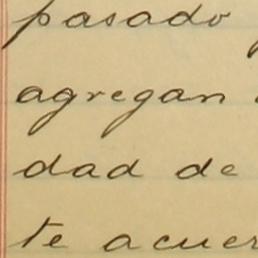 pasado
agregan
dad de
te acuer